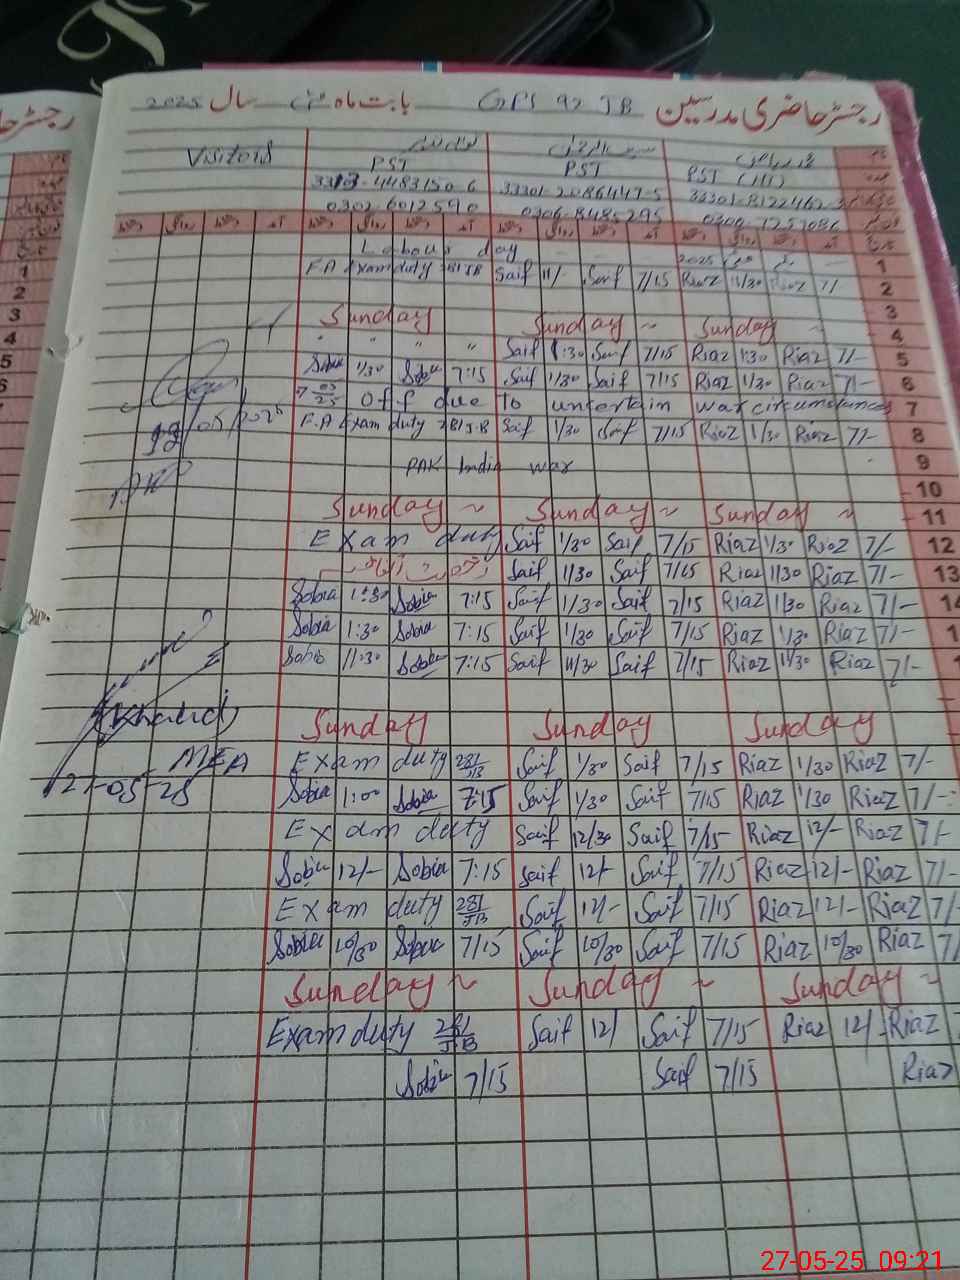 رجسٹر حاضری مدرسین GPS 92 JB بابت ماہ مئی سال 2025
Visitors
PST PST PST
0302-6012590 0306-8485295
Labour day
2025
1
F.A Exam duty 281 JB Saif 11/- Saif 7/15 Riaz 11/30 Riaz 7/- 2
3
Sunday Sunday ~ Sunday ~ 4
" " " " Saif 1:30 Saif 7/15 Riaz 1:30 Riaz 7/- 5
Sobia 1/30 Sobia 7:15 Saif 1/30 Saif 7/15 Riaz 1/30 Riaz 7/- 6
Off due To uncertain war circumstances 7
F.A Exam duty 281 J.B Saif 1/30 Saif 7/15 Riaz 1/30 Riaz 7/- 8
05/2025
PAK India war 9
10
Sunday ~ Sunday ~ Sunday ~ 11
Exam duty Saif 1/30 Saif 7/15 Riaz 1/30 Riaz 7/- 12
Saif 1/30 Saif 7/15 Riaz 1/30 Riaz 7/- 13
Sobia 1:30 Sobia 7:15 Saif 1/30 Saif 7/15 Riaz 1/30 Riaz 7/- 14
Sobia 1:30 Sobia 7:15 Saif 1/30 Saif 7/15 Riaz 1/30 Riaz 7/- 1
Sobia 11:30 Sobia 7:15 Saif 11/30 Saif 7/15 Riaz 11/30 Riaz 7/- 1
(Khalid)
Sunday Sunday Sunday
MEA
Exam duty 281/JB Saif 1/30 Saif 7/15 Riaz 1/30 Riaz 7/-
27-05-25
Sobia 1:00 Sobia 7:15 Saif 1/30 Saif 7/15 Riaz 1/30 Riaz 7/-
Exam duty Saif 12/30 Saif 7/15 Riaz 12/- Riaz 7/-
Sobia 12/- Sobia 7:15 Saif 12/- Saif 7/15 Riaz 12/- Riaz 7/-
Exam duty 281/JB Saif 12/- Saif 7/15 Riaz 12/- Riaz 7/
Sobia 10/30 Sobia 7/15 Saif 10/30 Saif 7/15 Riaz 10/30 Riaz 7/
Sunday ~ Sunday ~ Sunday ~
Exam duty 281/JB Saif 12/ Saif 7/15 Riaz 12/- Riaz 7
Sobia 7/15 Saif 7/15 Riaz
27-05-25 09:21